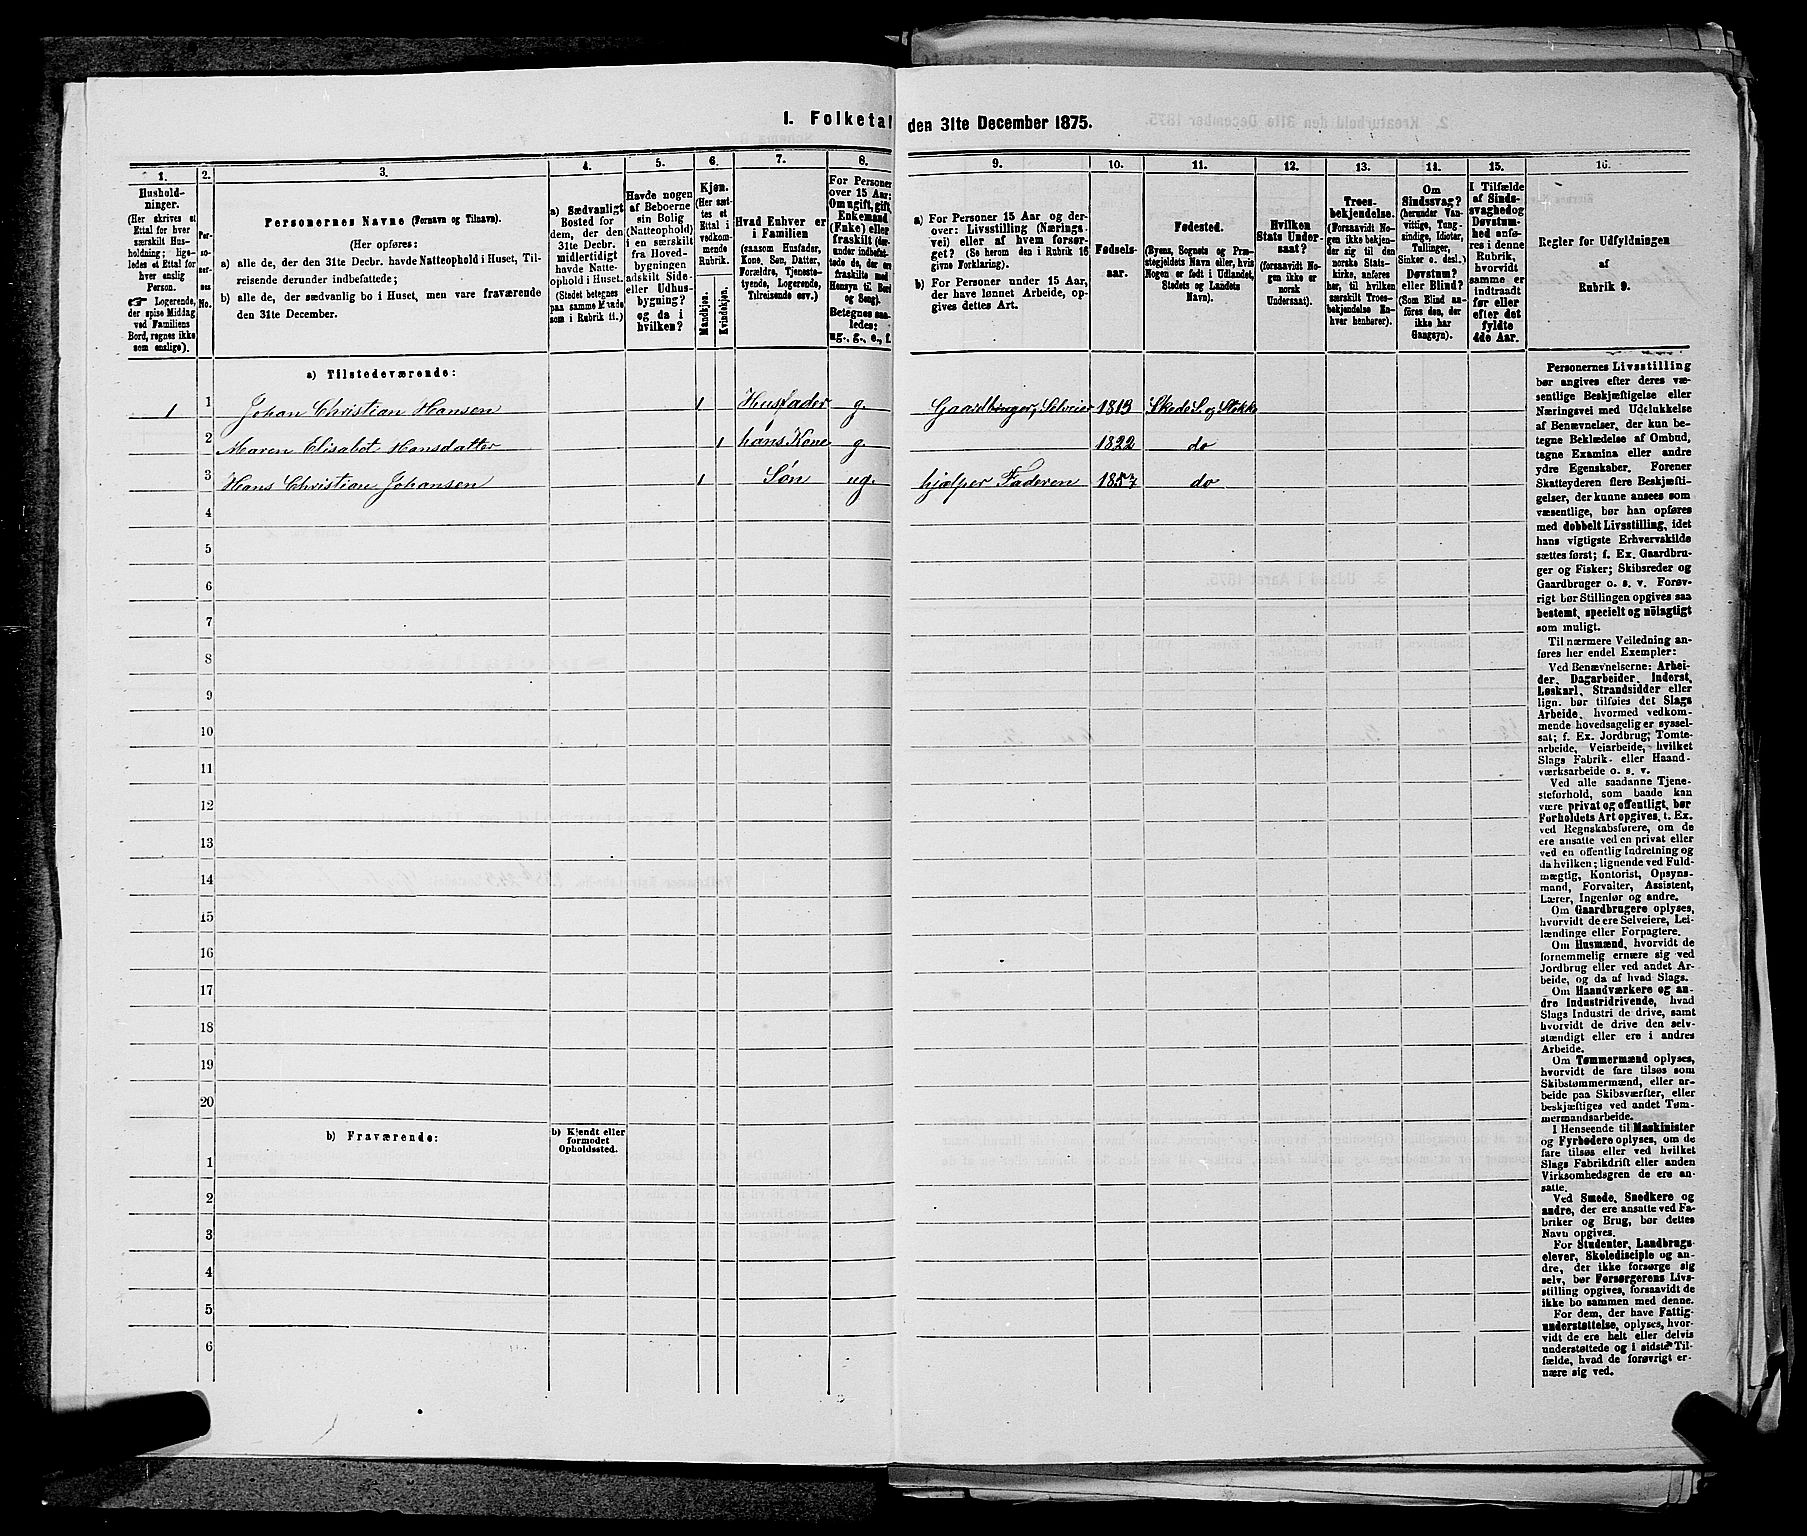 I. Folketal den 31te December 1875.
1. 2. 3. 4. 5. 6. 7. 8. 9. 10. 11. 12. 13. 14. 15. 16.
Hushold-
ninger.
(Her skrives et
Ettal for hver
særskilt Hus-
holdning; lige-
ledes et Ettal for
hver enslig
Person.
☞ Logerende,
der spise Middag
ved Familiens
Bord, regnes ikke
som enslige).
Per-
so-
ner-
nes
No.
Personernes Navne (Fornavn og Tilnavn).
(Her opføres:
a) alle de, der den 31te Decbr. havde Natteophold i Huset, Til-
reisende derunder indbefattede;
b) alle de, der sædvanlig bo i Huset, men vare fraværende
den 31te December.
a) Sædvanligt
Bosted for
dem, der den
31te Decbr.
midlertidigt
havde Natte-
ophold i Huset.
(Stedet betegnes
paa samme Maade,
som i Rubrik 11.)
Havde nogen
af Beboerne
sin Bolig
(Natteophold)
i en særskilt
fra Hoved-
bygningen
adskilt Side-
eller Udhus-
bygning?
og da i
hvilken?
Kjøn.
(Her sæt-
tes et
Ettal i
vedkom-
mende
Rubrik.
Mandkjøn.
Kvindekjøn.
Hvad Enhver er
i Familien
(saasom Husfader,
Kone, Søn, Datter,
Forældre, Tjeneste-
tyende, Logerende,
Tilreisende osv.)
For Personer
over 15 Aar:
Om ugift, gift,
Enkemand
(Enke) eller
fraskilt (der-
under indbefat-
tede de, der ere
fraskilte med
Hensyn til Bord
og Seng).
Betegnes saa-
ledes:
ug., g., e., f.
a) For Personer 15 Aar og der-
over: Livsstilling (Nærings-
vei) eller af hvem forsør-
get? (Se herom den i Rubrik 16
givne Forklaring).
b) For Personer under 15 Aar,
der have lønnet Arbeide, op-
gives dettes Art.
Fødsels-
aar.
Fødested.
(Byens, Sognets og Præ-
stegjeldets Navn eller, hvis
Nogen er født i Udlandet,
Stedets og Landets
Navn).
Hvilken
Stats Under-
saat?
(forsaavidt No-
gen ikke er
norsk
Undersaat).
Troes-
bekjendelse.
(Forsaavidt No-
gen ikke bekjen-
der sig til den
norske Stats-
kirke, anføres
her, til hvilken
særskilt Troes-
bekjendelse En-
hver henhører).
Om
Sindssvag?
(herunder Van-
vittige, Tung-
sindige, Idioter,
Tullinger,
Sinker o. desl.)
Døvstum?
eller Blind?
(Som Blind an-
føres den, der
ikke har
Gangsyn).
I Tilfælde
af Sinds-
svaghed og
Døvstum-
hed anfø-
res i denne
Rubrik,
hvorvidt
samme er
indtraadt
før eller
efter det
fyldte
4de Aar.
Regler for Udfyldningen
af
Rubrik 9.
a) Tilstedeværende:
1 1 Johan Christian Hansen 1 Husfader g. Gaardbruger, Selveier 1813 Skede S. og Stokke
2 Maren Elisabet Hansdatter 1 hans Kone g 1822 do
3 Hans Christian Johansen 1 Søn ug. hjælper Faderen 1857 do
4
5
6
7
8
9
10
11
12
13
14
15
16
17
18
19
20
b) Fraværende:
b) Kjendt eller
formodet
Opholdssted.
1
2
3
4
5
6
Personernes Livsstilling
bør angives efter deres væ-
sentlige Beskjæftigelse eller
Næringsvei med Udelukkelse
af Benævnelser, der kun be-
tegne Beklædelse af Ombud,
tagne Examina eller andre
ydre Egenskaber. Forener
Skatteyderen flere Beskjæfti-
gelser, der kunne ansees som
væsentlige, bør han opføres
med dobbelt Livsstilling, idet
hans vigtigste Erhvervskilde
sættes først; f. Ex. Gaardbru-
ger og Fisker; Skibsreder og
Gaardbruger o. s. v. Forøv-
rigt bør Stillingen opgives saa
bestemt, specielt og nöiagtigt
som muligt.
Til nærmere Veiledning an-
føres her endel Exempler:
Ved Benævnelserne: Arbei-
der, Dagarbeider, Inderst,
Løskarl, Strandsidder eller
lign. bør tilføies det Slags
Arbeide, hvormed vedkom-
mende hovedsagelig er syssel-
sat; f. Ex. Jordbrug; Tomte-
arbeide, Veiarbeide, hvilket
Slags Fabrik- eller Haand-
værksarbeide o. s. v.
Ved alle saadanne Tjene-
steforhold, som baade kan
være privat og offentligt, bør
Forholdets Art opgives, t. Ex.
ved Regnskabsførere, om de
ere ansatte ved en privat eller
ved en offentlig Indretning og
da hvilken; lignende ved Fuld-
mægtig, Kontorist, Opsyns-
mand, Forvalter, Assistent,
Lærer, Ingeniør og andre.
Om Gaardbrugere oplyses,
hvorvidt de ere Selveiere, Lei-
lændinge eller Forpagtere.
Om Husmænd, hvorvidt de
fornemmelig ernære sig ved
Jordbrug eller ved andet Ar-
beide, og da af hvad Slags.
Om Haandværkere og an-
dre Industridrivende, hvad
Slags Industri de drive, samt
hvorvidt de drive den selv-
stændigt eller ere i andres
Arbeide.
Om Tømmermænd oplyses,
hvorvidt de fare tilsøs som
Skibstømmermænd, eller ar-
beide paa Skibsværfter, eller
beskjæftiges ved andet Tøm-
mermandsarbeide.
I Henseende til Maskinister
og Fyrbødere oplyses, om de
fare tilsøs eller ved hvilket
Slags Fabrikdrift eller anden
Virksomhedsgren de ere an-
satte.
Ved Smede, Snedkere og
andre, der ere ansatte ved Fa-
briker og Brug, bør dettes
Navn opgives.
For Studenter, Landbrugs-
elever, Skoledisciple og an-
dre, der ikke forsørge sig
selv, bør Forsørgerens Livs-
stilling opgives, forsaavidt de
ikke bo sammen med denne.
For dem, der have Fattig-
understøttelse, oplyses, hvor-
vidt de ere helt eller delvis
understøttede og i sidste Til-
fælde, hvad de forøvrigt er-
nære sig ved.